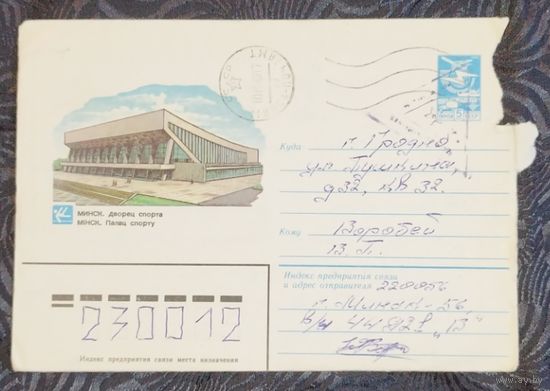 МИНСК. Дворец спорта
МІНСК. Палац спорту
Куда
г. Гродно,
ул. Пушкина,
д 32, кв 32.
Кому
Воробей
В. П.
Индекс предприятия связи
и адрес отправителя 220056
г. Минск - 56
в/ч
230012
Индекс предприятия связи места назначения